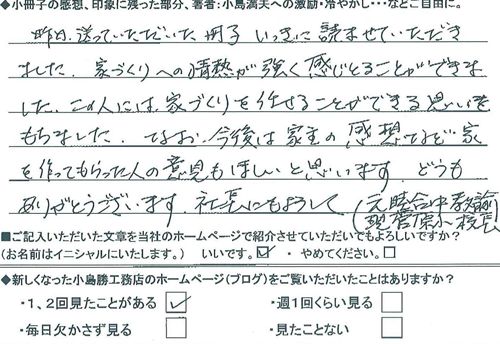 ◆小冊子の感想、印象に残った部分、著者:小島満夫への激励・冷やかし…などご自由に。
昨日、送っていただいた冊子 いっきに読ませていただき
ました。家づくりへの情熱が強く感じとることができま
した。この人には家づくりを任せることができる思いを
もちました。なお、今後は家主の感想など家
を作ってもらった人の意見もほしいと思います。どうも
ありがとうございます。社長にもよろしく
(元睦合中教諭
現菅原小校長
■ご記入いただいた文章を当社のホームページで紹介させていただいてもよろしいですか?
(お名前はイニシャルにいたします。) いいです。☑・やめてください。□
◆新しくなった小島勝工務店のホームページ(ブログ)をご覧いただいたことはありますか?
・1、2回見たことがある ☑ ・週1回くらい見る □
・毎日欠かさず見る □ ・見たことない □